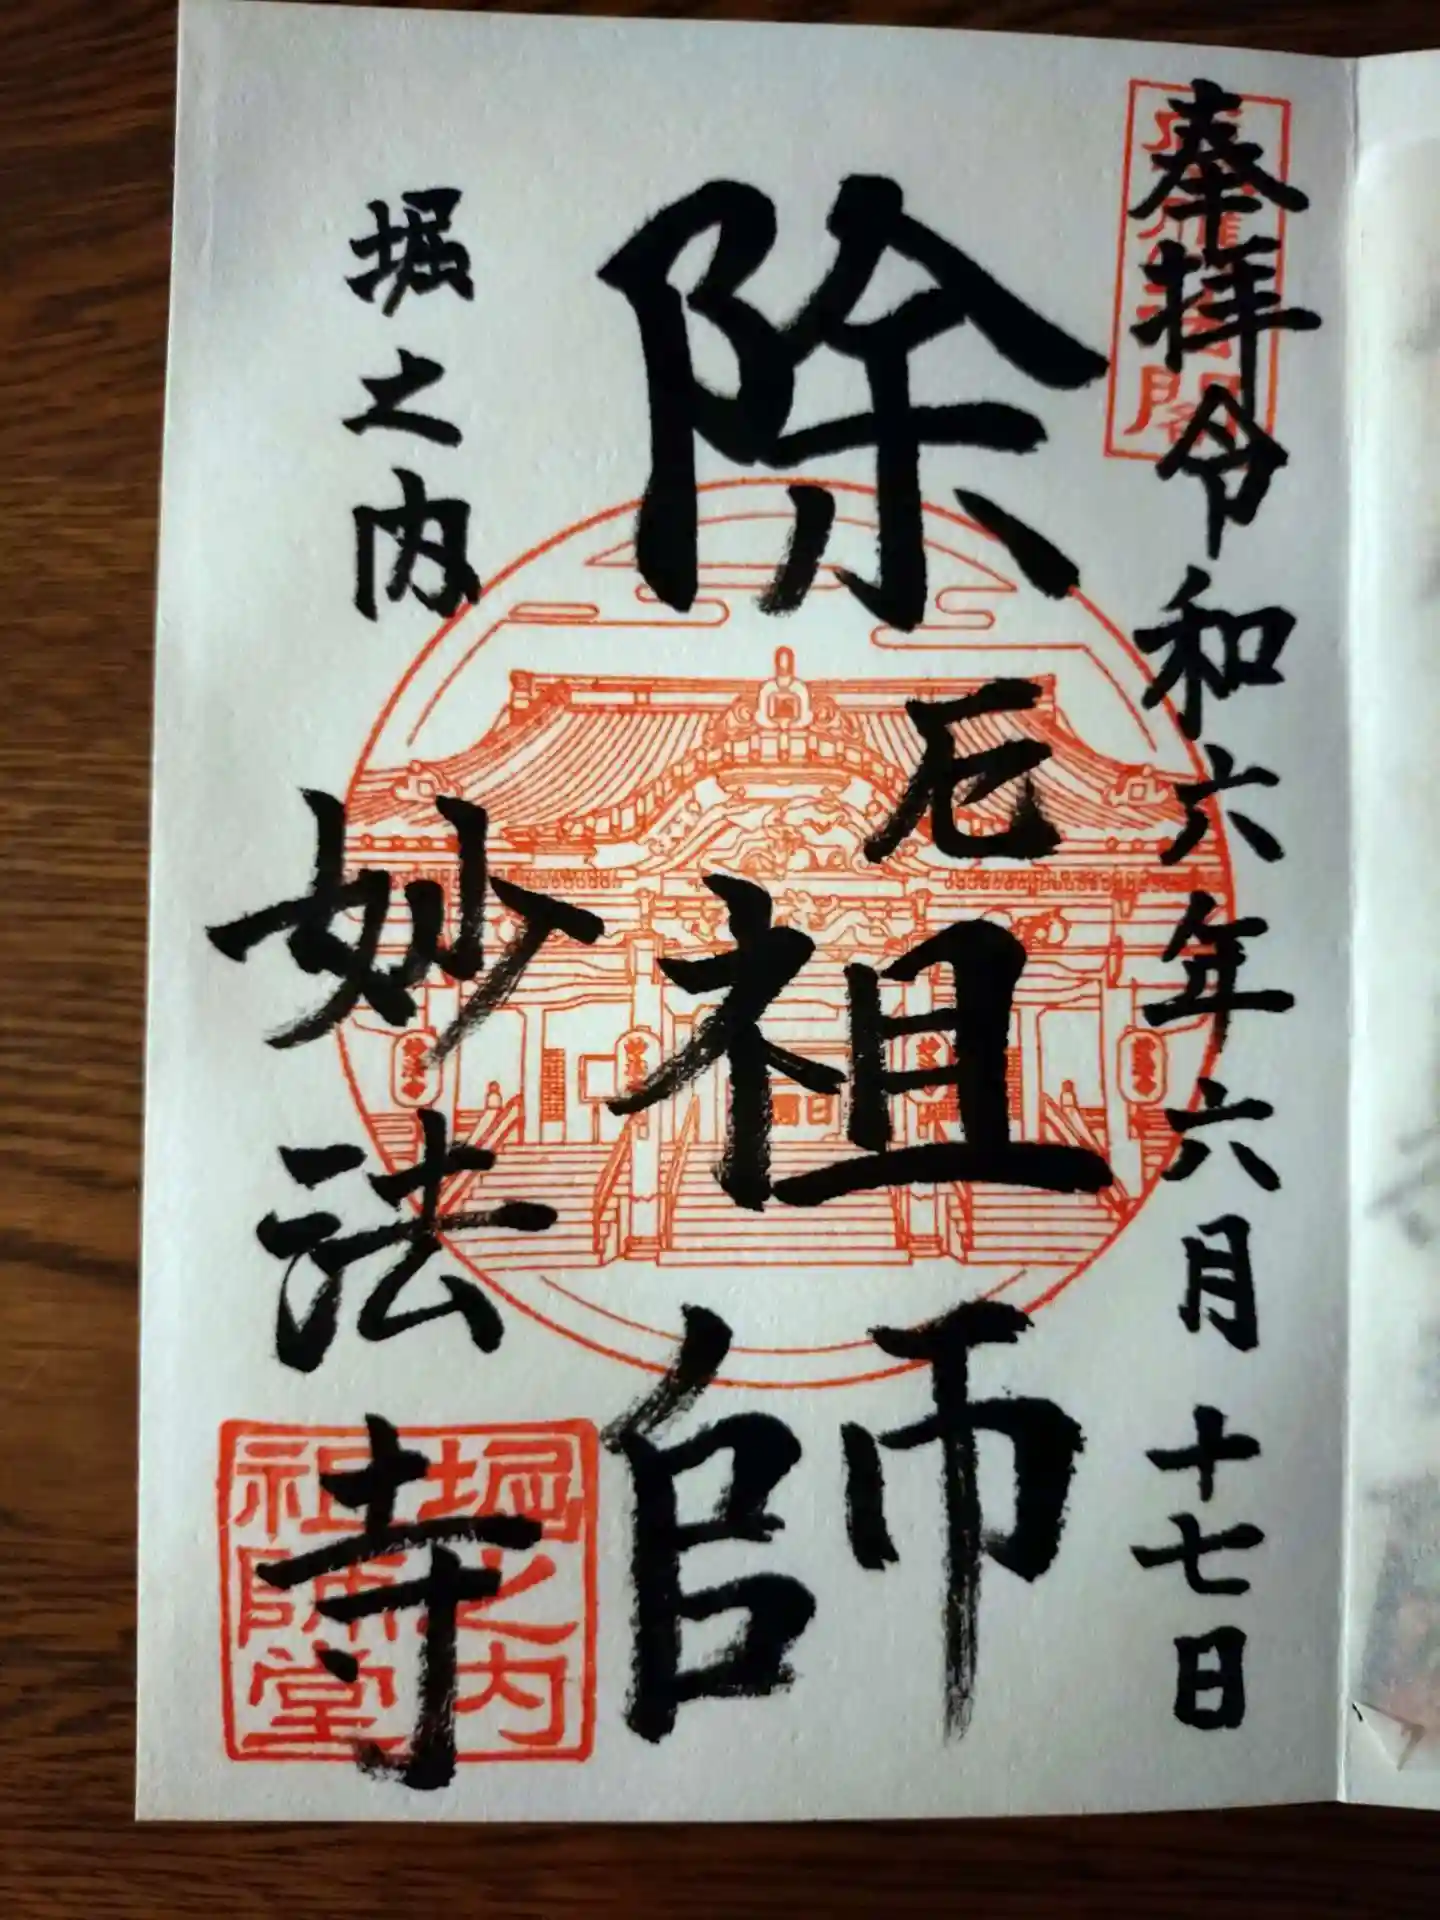 奉拝令和六年六月十七日
除厄祖師
堀之内
妙法寺
堀之内
祖師堂